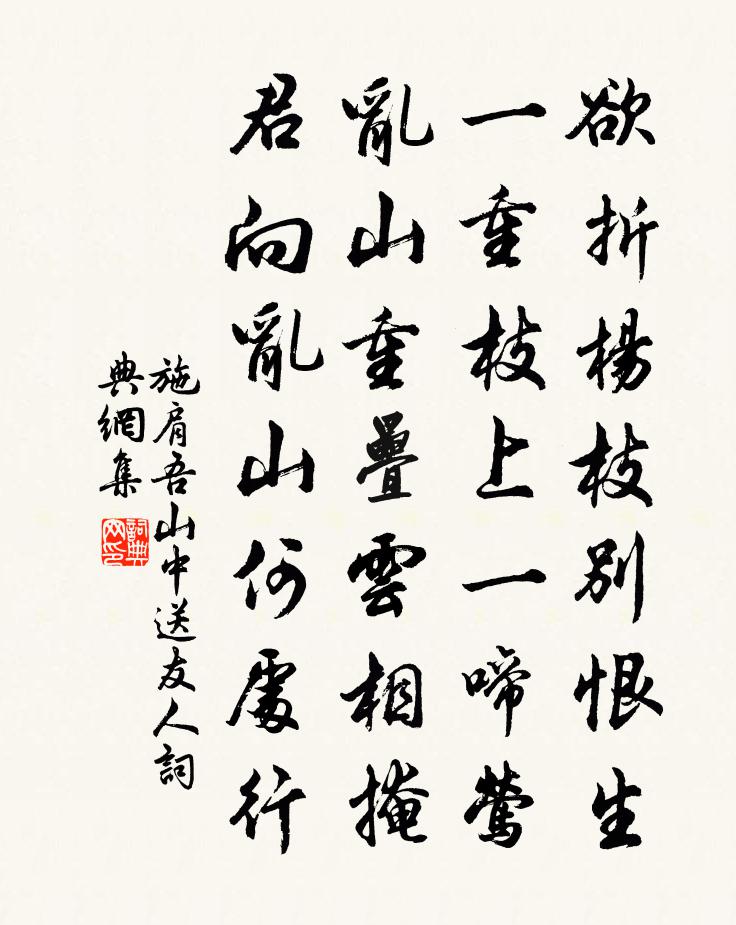 欲折楊枝別恨生
一重枝上一啼鶯
亂山重疊雲相掩
君向亂山何處行
施肩吾山中送友人詞
典網集
詞典网印